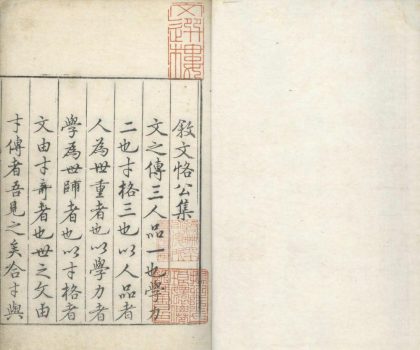 敘文恪公集
文之傳三人品一也學力
二也才格三也以人品者
人為世重者也以學力者
學為世師者也以才格者
文由才奇者也世之文由
才傳者吾見之矣合才與
文選樓